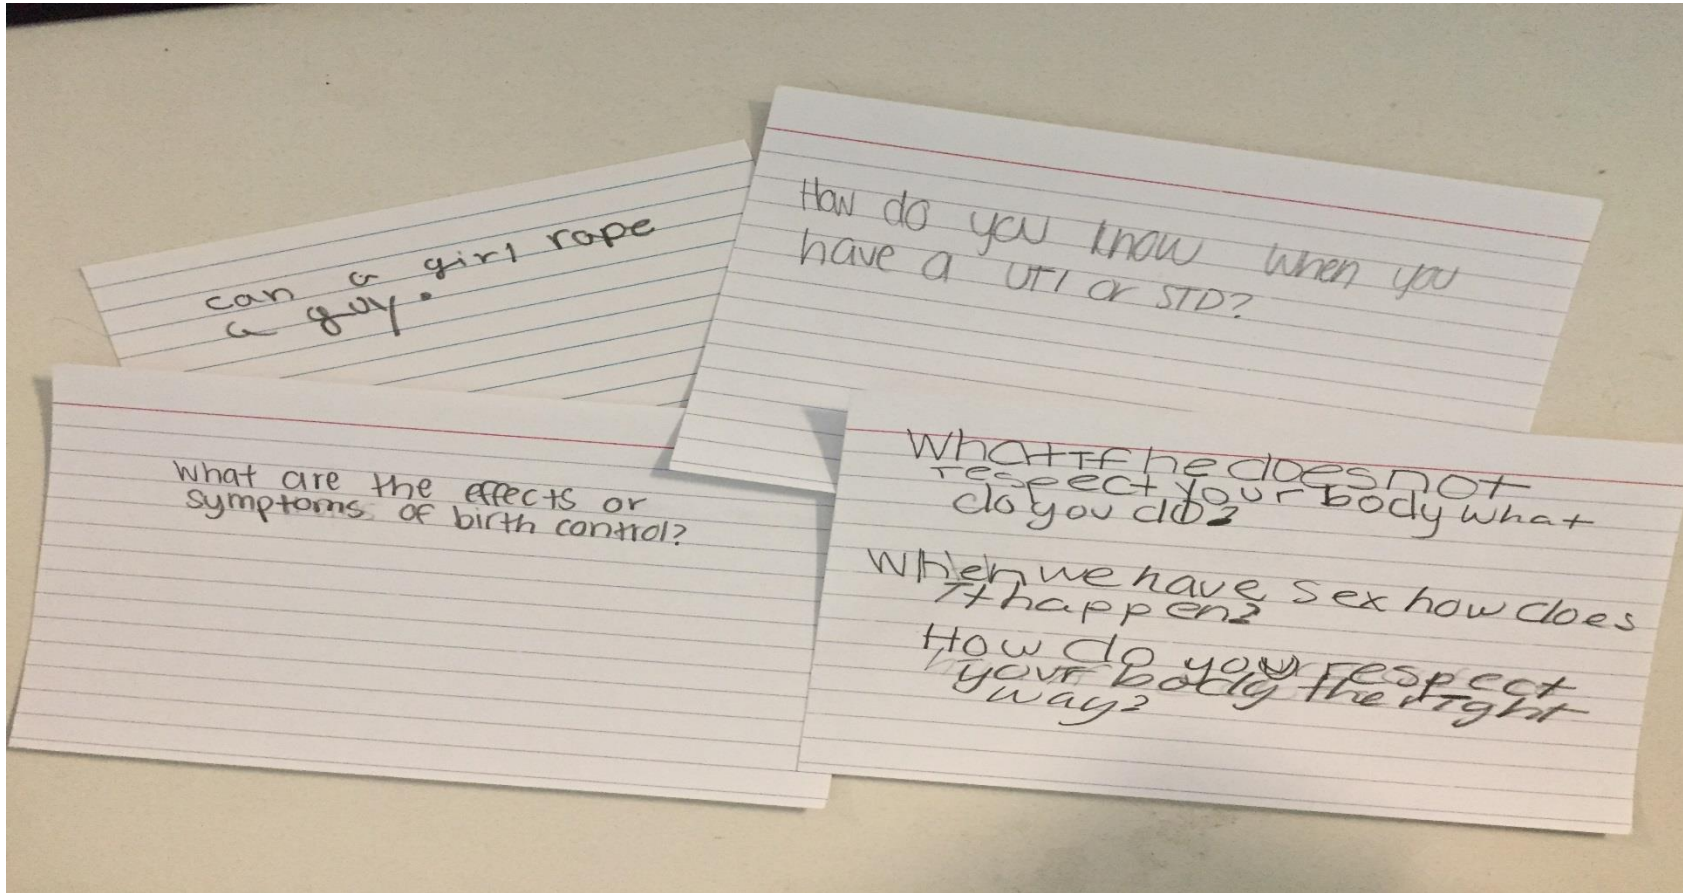 can a girl rape
a guy.
How do you know when you
have a UTI or STD?
What are the effects or
symptoms of birth control?
What If he does not
respect your body what
do you do?
When we have sex how does
It happen?
How do you respect
your body the right
way?